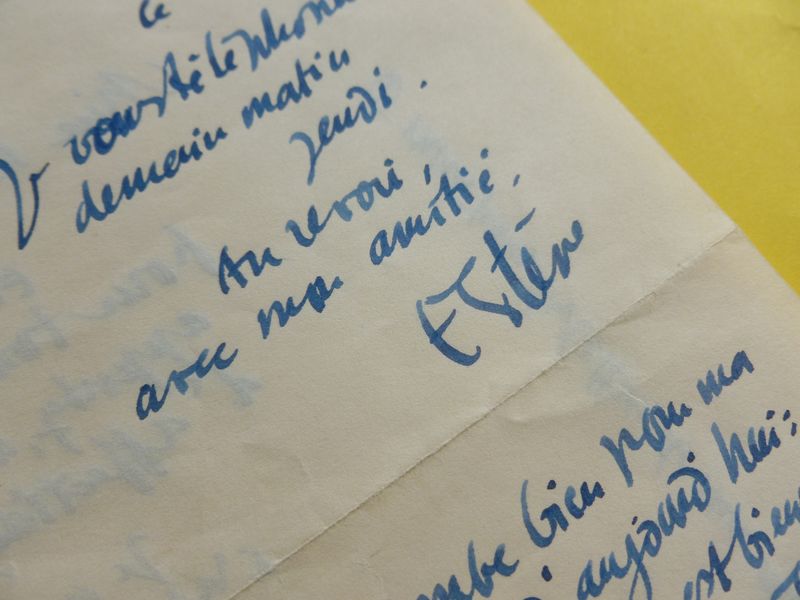 ce
vous téléphone
demain matin
jeudi.
Au revoir,
avec mon amitié.
Estève
bien pour ma
aujourd'hui:
est bien